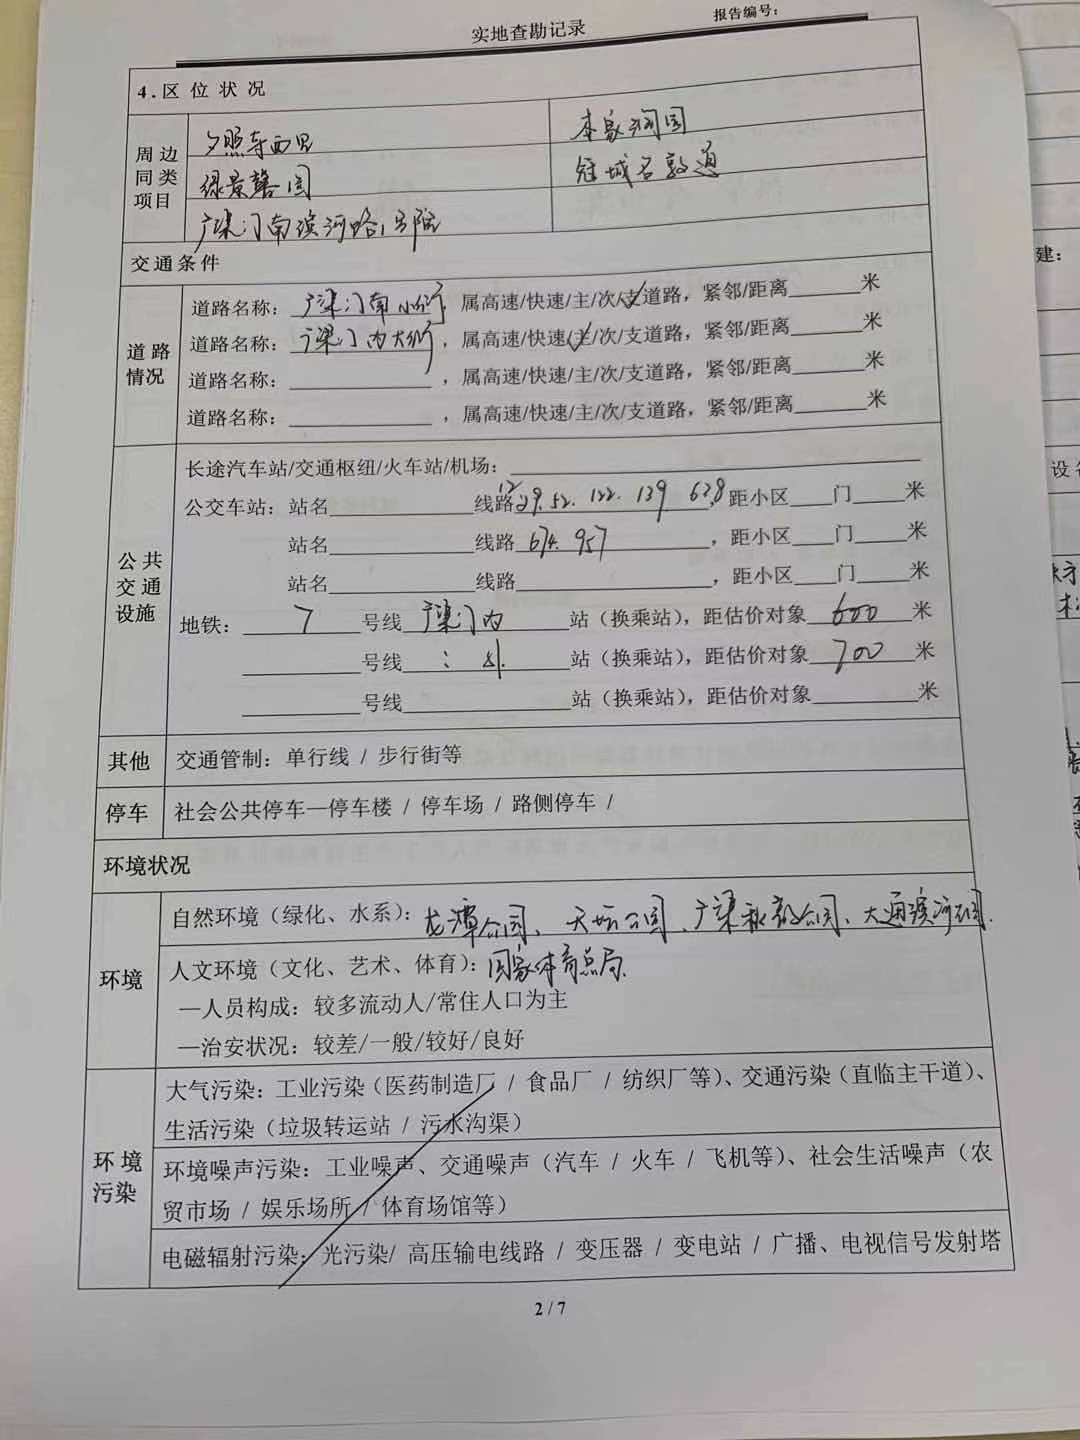 实地查勘记录
报告编号：
4.区位状况
周边同类项目
夕照寺西里
本家润园
绿景馨园
冠城名敦道
广渠门南滨河路1号院
交通条件
道路情况
道路名称：广渠门南小街，属高速/快速/主/次/支道路，紧邻/距离______米
道路名称：广渠门内大街，属高速/快速/主/次/支道路，紧邻/距离______米
道路名称：____________，属高速/快速/主/次/支道路，紧邻/距离______米
道路名称：____________，属高速/快速/主/次/支道路，紧邻/距离______米
公共交通设施
长途汽车站/交通枢纽/火车站/机场：
公交车站：站名____________线路12 29.52.122.139 628，距小区____门____米
站名____________线路674.957，距小区____门____米
站名____________线路____________，距小区____门____米
地铁：7号线广渠门内站（换乘站），距估价对象600米
______号线：外站（换乘站），距估价对象700米
______号线____________站（换乘站），距估价对象______米
其他
交通管制：单行线 / 步行街等
停车
社会公共停车—停车楼 / 停车场 / 路侧停车 /
环境状况
环境
自然环境（绿化、水系）：龙潭公园、天坛公园、广渠秋韵公园、大通滨河公园.
人文环境（文化、艺术、体育）：国家体育总局.
—人员构成：较多流动人/常住人口为主
—治安状况：较差/一般/较好/良好
环境污染
大气污染：工业污染（医药制造厂 / 食品厂 / 纺织厂等）、交通污染（直临主干道）、
生活污染（垃圾转运站 / 污水沟渠）
环境噪声污染：工业噪声、交通噪声（汽车 / 火车 / 飞机等）、社会生活噪声（农
贸市场 / 娱乐场所 / 体育场馆等）
电磁辐射污染：光污染/ 高压输电线路 / 变压器 / 变电站 / 广播、电视信号发射塔
2 / 7
建：